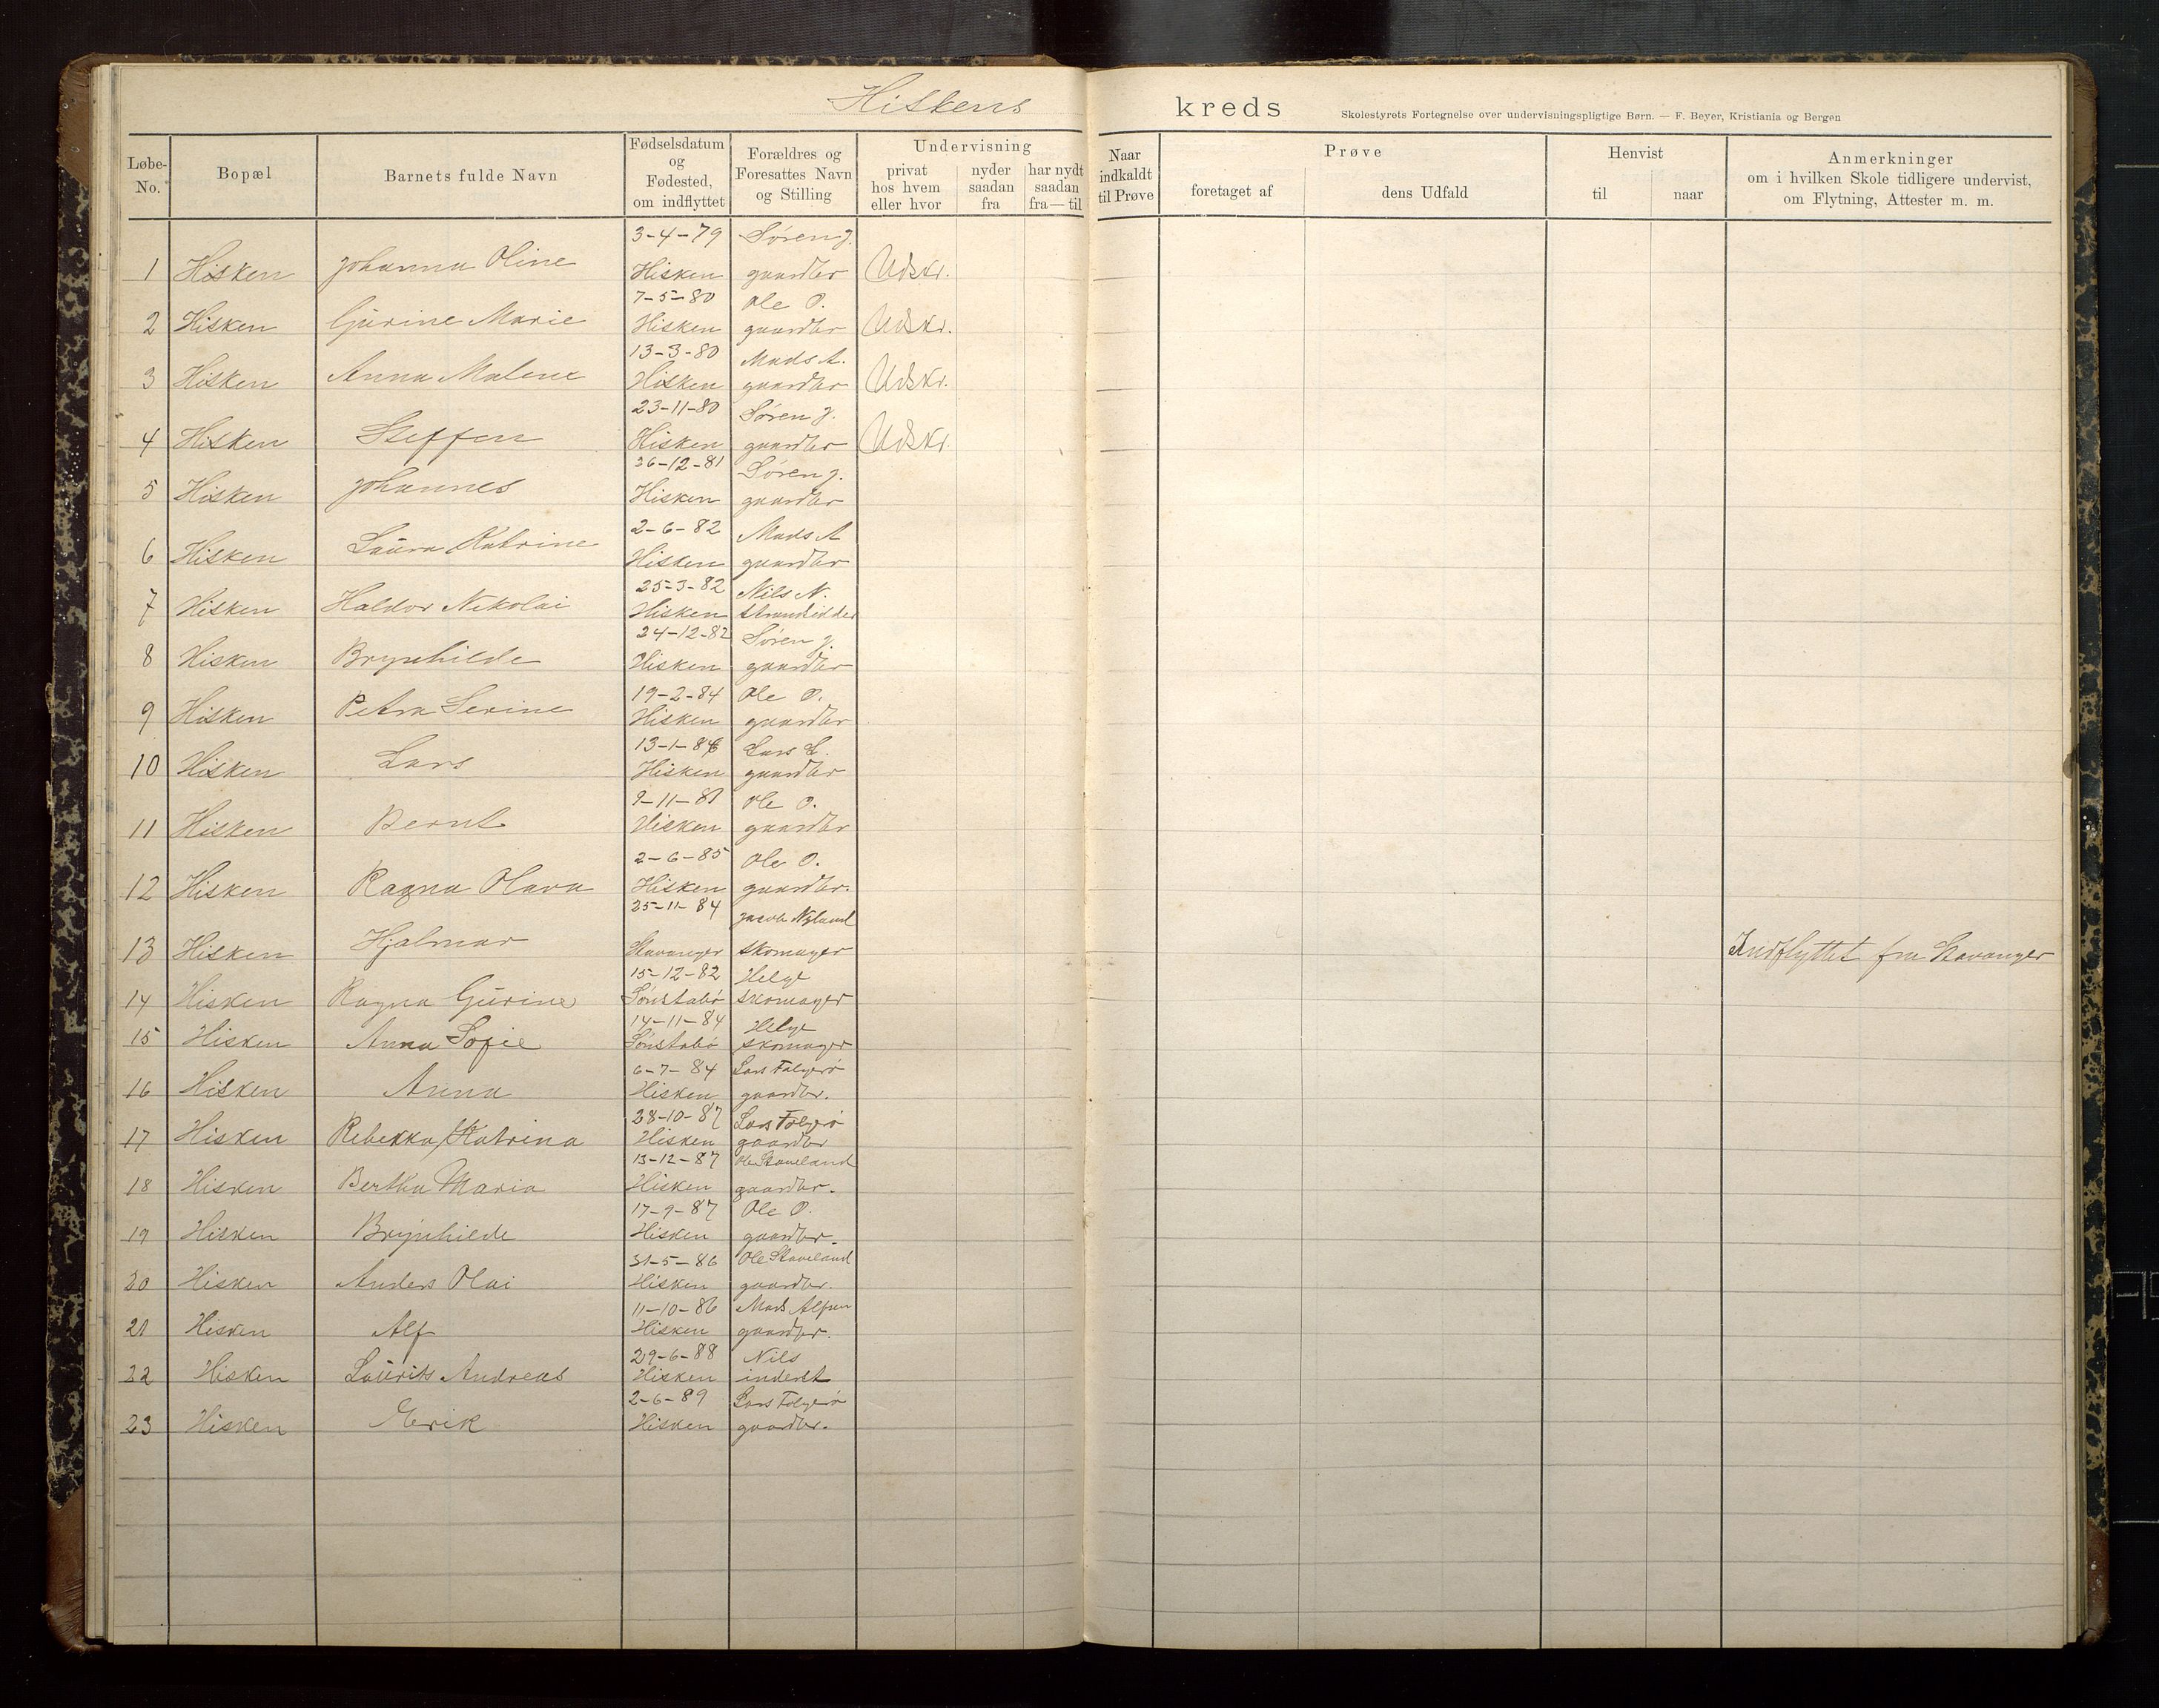 Hiskens kreds
Skolestyrets Fortegnelse over undervisningspligtige Børn. — F. Beyer, Kristiania og Bergen
Løbe-No. Bopæl Barnets fulde Navn Fødselsdatum og Fødested, om indflyttet Forældres og Foresattes Navn og Stilling Undervisning privat hos hvem eller hvor nyder saadan fra har nydt saadan fra—til Naar indkaldt til Prøve Prøve foretaget af dens Udfald Henvist til naar Anmerkninger om i hvilken Skole tidligere undervist, om Flytning, Attester m. m.
3-4-79 Søren J.
1 Hisken Johanna Oline Hisken gaardbr Udskr.
7-5-80 Ole O.
2 Hisken Gurine Marie Hisken gaardbr Udskr.
13-3-80 Mads A.
3 Hisken Anna Malene Hisken gaardbr Udskr.
23-11-80 Søren J.
4 Hisken Steffen Hisken gaardbr Udskr.
26-12-81 Søren J.
5 Hisken Johannes Hisken gaardbr
2-6-82 Mads A
6 Hisken Laura Katrine Hisken gaardbr
25-3-82 Nils N.
7 Hisken Haldor Nikolai Hisken strandsidder
24-12-82 Søren J.
8 Hisken Brynhilde Hisken gaardbr
19-2-84 Ole O.
9 Hisken Petra Serine Hisken gaardbr
13-1-86 Lars L.
10 Hisken Lars Hisken gaardbr
9-11-81 Ole O.
11 Hisken Bernt Hisken gaardbr
2-6-85 Ole O.
12 Hisken Ragna Olava Hisken gaardbr.
25-11-84 Jacob Nyland
13 Hisken Hjalmar Stavanger skomager Indflyttet fra Stavanger
15-12-82 Helge
14 Hisken Ragna Gurine Sønstabø skomager
14-11-84 Helge
15 Hisken Anna Sofie Sønstabø skomager
6-7-84 Lars Folgerø
16 Hisken Anna Hisken gaardbr.
28-10-87 Lars Folgerø
17 Hisken Rebekka Katrina Hisken gaardbr
13-12-87 Ole Staveland
18 Hisken Bertha Maria Hisken gaardbr.
17-9-87 Ole O.
19 Hisken Brynhilde Hisken gaardbr.
31-5-86 Ole Staveland
20 Hisken Anders Olai Hisken gaardbr.
11-10-86 Mads
21 Hisken Alf Hisken gaardbr.
29-6-88 Nils
22 Hisken Laurits Andreas Hisken inderst
2-6-89 Lars Folgerø
23 Hisken Erik Hisken gaardbr.